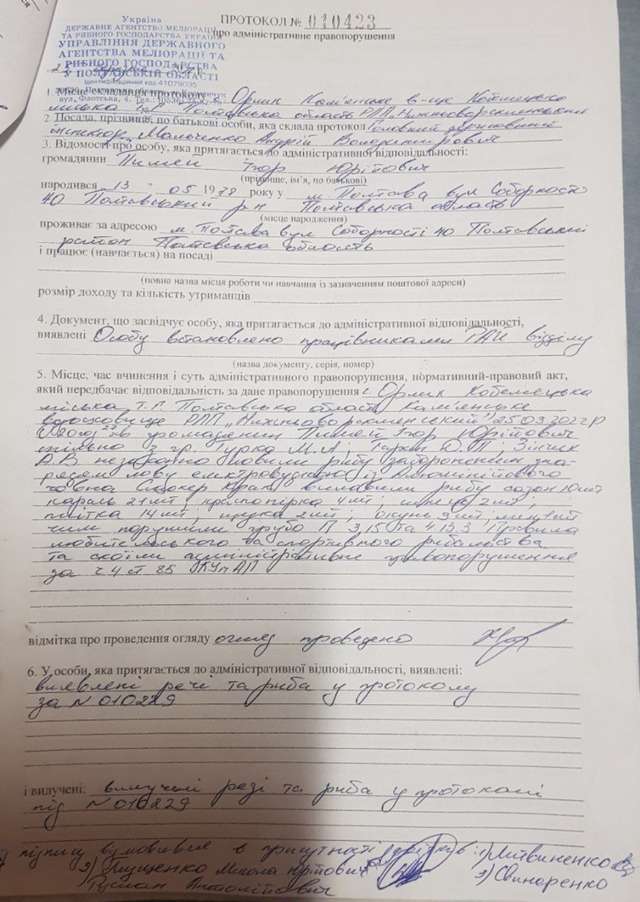 Україна
ДЕРЖАВНЕ АГЕНТСТВО МЕЛІОРАЦІЇ
ТА РИБНОГО ГОСПОДАРСТВА УКРАЇНИ
УПРАВЛІННЯ ДЕРЖАВНОГО
АГЕНТСТВА МЕЛІОРАЦІЇ ТА
РИБНОГО ГОСПОДАРСТВА
У ПОЛТАВСЬКІЙ ОБЛАСТІ
ПРОТОКОЛ № 010423
про адміністративне правопорушення
1. Місце складання протоколу с. Орлик Кам'янське в-ще Кобеляцька
міська Полтавська область РЛП Нижньоворсклянський
2. Посада, прізвище, по батькові особи, яка склала протокол Головний державний
інспектор Андрій Володимирович
3. Відомості про особу, яка притягається до адміністративної відповідальності:
громадянин Ігор Юрійович
(прізвище, ім'я, по батькові)
народився 13 05 19 року у м Полтава вул Соборності
40 Полтавський р-н Полтавська область
(місце народження)
проживає за адресою м. Полтава вул Соборності 40 Полтавський
район Полтавська область
і працює (навчається) на посаді
(повна назва місця роботи чи навчання із зазначенням поштової адреси)
розмір доходу та кількість утриманців
4. Документ, що засвідчує особу, яка притягається до адміністративної відповідальності,
виявлені Особу встановлено працівниками відділу
(назва документу, серія, номер)
5. Місце, час вчинення і суть адміністративного правопорушення, нормативний-правовий акт,
який передбачає відповідальність за дане правопорушення с. Орлик Кобеляцька
міська Т.Г. Полтавська область Кам'янське
водосховище РЛП „Нижньоворсклянський" 25.03.2022р
громадянин Ігор Юрійович
спільно з гр. М.А, Ю.П.
А.В. незаконно ловили рибу забороненим зна-
ряддям лову електровудкою із алюмінійового
човна виловили рибу сазан 10шт
карась 21шт 4шт, 2шт,
плітка 14шт, щука 2шт, окунь 3шт,
чим порушили грубо П 3,15 та 4 Правила
любительського та спортивного рибальства
та скоїли адміністративне правопорушення
за ч 4 ст 85 КУпАП
відмітка про проведення огляду огляд проведено
6. У особи, яка притягається до адміністративної відповідальності, виявлені:
виявлені речі та риба у протоколу
за №010229
і вилучені: вилучені речі та риба у протоколі
під №010229
підпису відмовився в присутності свідків: 1) Литвиненко
2) Микола Юрійович 3) Свинаренко
Руслан Анатолійович